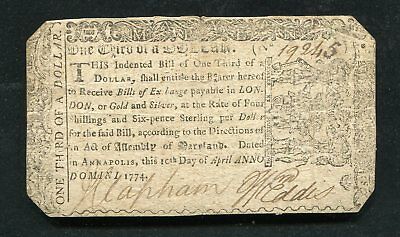 ONE THIRD OF A DOLLAR.
One Third of a DOLLAR.
(No 19245
THIS Indented Bill of One Third of a
DOLLAR, shall entitle the Bearer hereof
to Receive Bills of Exchange payable in LON-
DON, or Gold and Silver, at the Rate of Four
Shillings and Six-pence Sterling per Dollar
for the said Bill, according to the Directions of
an Act of Assembly of Maryland. Dated
in ANNAPOLIS, this 10th Day of April ANNO
DOMINI 1774.
J Clapham
Wm Eddis